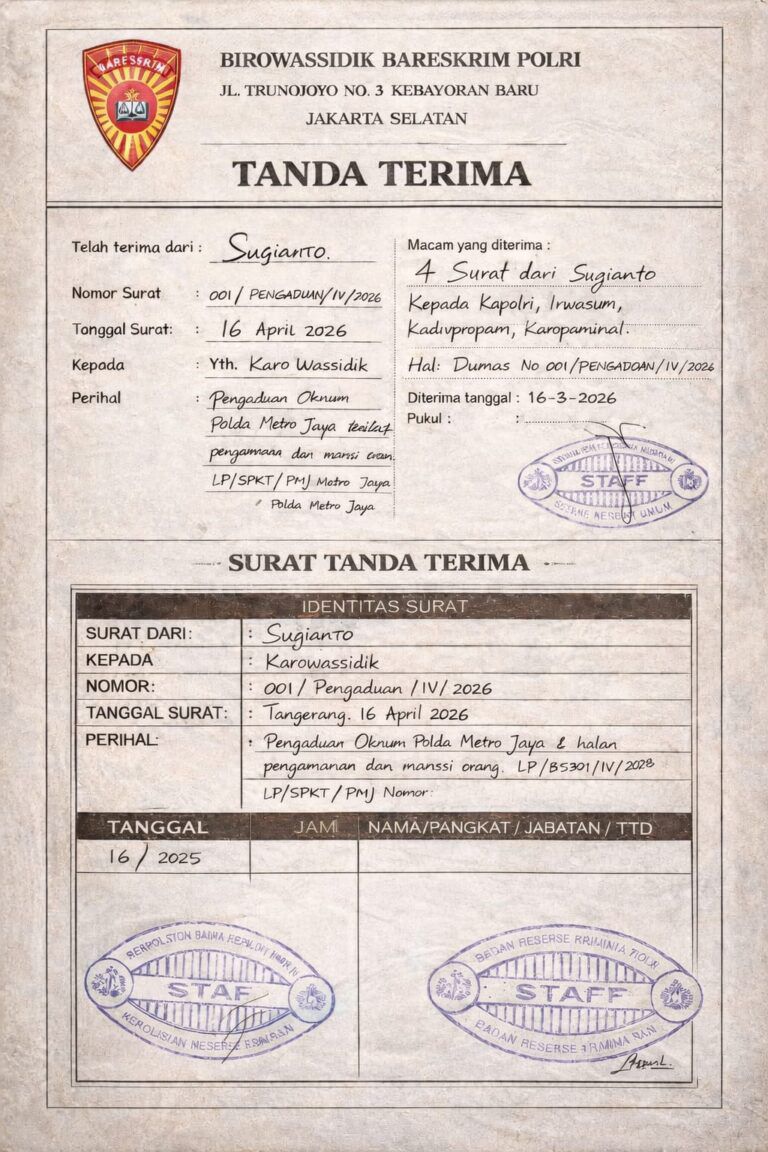 BARESSRIM
BIROWASSIDIK BARESKRIM POLRI
JL. TRUNOJOYO NO. 3 KEBAYORAN BARU
JAKARTA SELATAN
TANDA TERIMA
Telah terima dari : Sugianto.
Nomor Surat : 001/PENGADUAN/IV/2026
Tanggal Surat: : 16 April 2026
Kepada : Yth. Karo Wassidik
Perihal : Pengaduan Oknum
Polda Metro Jaya
dan
LP/SPKT/PMJ Metro Jaya
Polda Metro Jaya
Macam yang diterima :
4 Surat dari Sugianto
Kepada Kapolri, Irwasum,
Kadivpropam, Karopaminal.
Hal: Dumas No 001/PENGADOAN/IV/2026
Diterima tanggal : 16-3-2026
Pukul : :
STAFF
SURAT TANDA TERIMA
IDENTITAS SURAT
SURAT DARI: : Sugianto
KEPADA : Karowassidik
NOMOR: : 001/Pengaduan/IV/2026
TANGGAL SURAT: : Tangerang. 16 April 2026
PERIHAL: : Pengaduan Oknum Polda Metro Jaya & halan
pengamanan dan manssi orang.
LP/SPKT/PMJ Nomor:
TANGGAL JAM NAMA/PANGKAT/JABATAN/TTD
16/2025
STAF
BEDAN RESERSE
STAFF
BADAN RESERSE